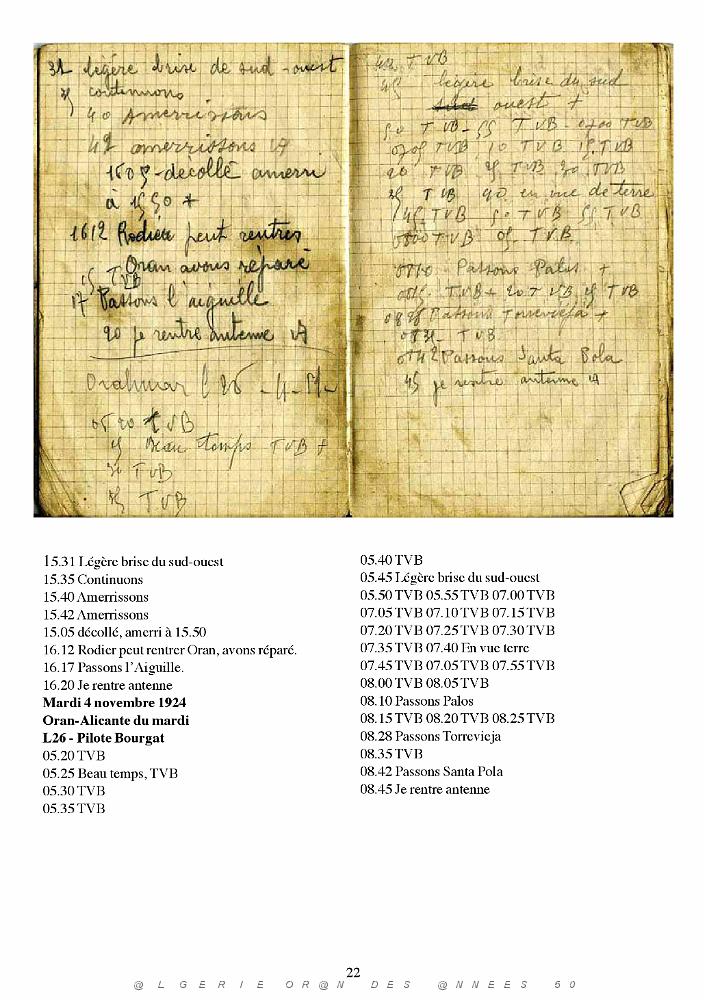 31 légère brise de sud-ouest
35 continuons
40 Amerrissons
42 amerrissons VA
1605-décollé amerri
à 1550 +
1612 Rodier peut rentrer
Oran avons réparé
15 TVB
17 Passons l'aiguille
20 je rentre antenne VA
L 26 - 4-11-
0520 TVB
25 Beau temps TVB +
30 TVB
35 TVB
40 TVB
45 légère brise du sud
ouest +
50 TVB-55 TVB-0700 TVB
0705 TVB 10 TVB 15 TVB
20 TVB 25 TVB 30 TVB
35 TVB 40 en vue de terre
45 TVB 50 TVB 55 TVB
0800 TVB 05 TVB
0810 Passons Palos +
0815 TVB+ 20 TVB 25 TVB
0828 Passons Torrevieja +
0835 TVB
0842 Passons Santa Pola
45 je rentre antenne VA
15.31 Légère brise du sud-ouest
15.35 Continuons
15.40 Amerrissons
15.42 Amerrissons
15.05 décollé, amerri à 15.50
16.12 Rodier peut rentrer Oran, avons réparé.
16.17 Passons l’Aiguille.
16.20 Je rentre antenne
Mardi 4 novembre 1924
Oran-Alicante du mardi
L26 - Pilote Bourgat
05.20 TVB
05.25 Beau temps, TVB
05.30 TVB
05.35 TVB
05.40 TVB
05.45 Légère brise du sud-ouest
05.50 TVB 05.55 TVB 07.00 TVB
07.05 TVB 07.10 TVB 07.15 TVB
07.20 TVB 07.25 TVB 07.30 TVB
07.35 TVB 07.40 En vue terre
07.45 TVB 07.05 TVB 07.55 TVB
08.00 TVB 08.05 TVB
08.10 Passons Palos
08.15 TVB 08.20 TVB 08.25 TVB
08.28 Passons Torrevieja
08.35 TVB
08.42 Passons Santa Pola
08.45 Je rentre antenne
22
@ L G E R I E O R @ N D E S @ N N E E S 5 0